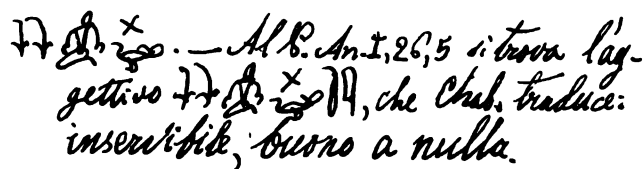 . — Al P. An. I, 26, 5 si trova l'ag-
gettivo , che Chab. traduce:
inservibile, buono a nulla.